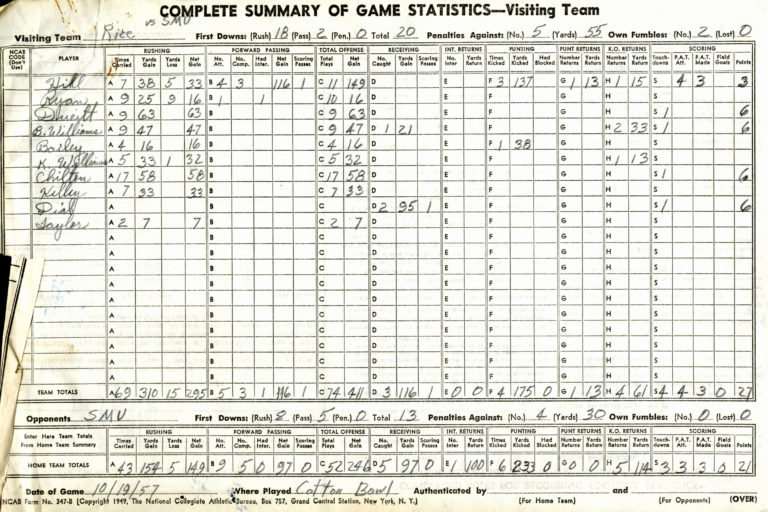 COMPLETE SUMMARY OF GAME STATISTICS—Visiting Team
Visiting Team Rice vs SMU First Downs: (Rush) 18 (Pass) 2 (Pen.) 0 Total 20 Penalties Against: (No.) 5 (Yards) 55 Own Fumbles: (No.) 2 (Lost) 0
NCAB CODE (Don't Use) PLAYER RUSHING FORWARD PASSING TOTAL OFFENSE RECEIVING INT. RETURNS PUNTING PUNT RETURNS K.O. RETURNS SCORING
Times Carried Yards Gain Yards Loss Net Gain No. Att. No. Comp. Had Inter. Net Gain Scoring Passes Total Plays Net Gain No. Caught Yards Gain Scoring Passes No. Inter Yards Return Times Kicked Yards Kicked Had Blocked Number Returns Yards Return Number Returns Yards Return Touchdowns P.A.T. Att. P.A.T. Made Field Goals Points
Hill A 7 38 5 33 B 4 3 116 1 C 11 149 D E F 3 137 G 1 13 H 1 15 S 4 3 3
Ryan A 9 25 9 16 B 1 1 C 10 16 D E F G H S
A 9 63 63 B C 9 63 D E F G H S 1 6
B. Williams A 9 47 47 B C 9 47 D 1 21 E F G H 2 33 S 1 6
A 4 16 16 B C 4 16 D E F 1 38 G H S
K. Williams A 5 33 1 32 B C 5 32 D E F G H 1 13 S
Chilton A 17 58 58 B C 17 58 D E F G H S 1 6
Kelley A 7 33 33 B C 7 33 D E F G H S
Dial A B C D 2 95 1 E F G H S 1 6
Taylor A 2 7 7 B C 2 7 D E F G H S
A B C D E F G H S
A B C D E F G H S
A B C D E F G H S
A B C D E F G H S
A B C D E F G H S
A B C D E F G H S
A B C D E F G H S
A B C D E F G H S
A B C D E F G H S
A B C D E F G H S
TEAM TOTALS A 69 310 15 295 B 5 3 1 116 1 C 74 411 D 3 116 1 E 0 0 F 4 175 0 G 1 13 H 4 61 S 4 4 3 0 27
Opponents SMU First Downs: (Rush) 8 (Pass) 5 (Pen.) 0 Total 13 Penalties Against: (No.) 4 (Yards) 30 Own Fumbles: (No.) 0 (Lost) 0
Enter Here Team Totals From Home Team Summary RUSHING FORWARD PASSING TOTAL OFFENSE RECEIVING INT. RETURNS PUNTING PUNT RETURNS K.O. RETURNS SCORING
Times Carried Yards Gain Yards Loss Net Gain No. Att. No. Comp. Had Inter. Net Gain Scoring Passes Total Plays Net Gain No. Caught Yards Gain Scoring Passes No. Inter Yards Return Times Kicked Yards Kicked Had Blocked Number Returns Yards Return Number Returns Yards Return Touchdowns P.A.T. Att. P.A.T. Made Field Goals Points
HOME TEAM TOTALS A 43 154 5 149 B 9 5 0 97 0 C 52 246 D 5 97 0 E 1 100 F 6 233 0 G 0 0 H 5 114 S 3 3 3 0 21
Date of Game 10/19/57 Where Played Cotton Bowl Authenticated by and
NCAB Form No. 347-B (Copyright 1949, The National Collegiate Athletic Bureau, Box 757, Grand Central Station, New York, N. Y.) (For Home Team) (For Opponents) (OVER)